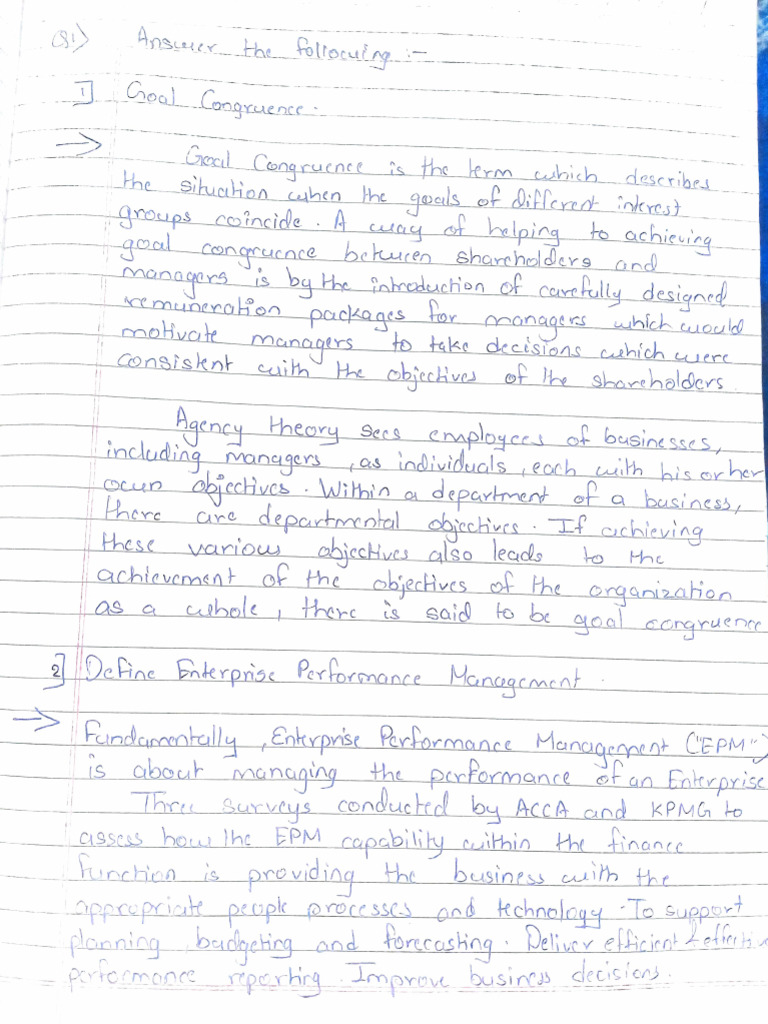 Q1) Answer the following :-
1] Goal Congruence.
→ Goal Congruence is the term which describes
the situation when the goals of different interest
groups coincide. A way of helping to achieving
goal congruence between shareholders and
managers is by the introduction of carefully designed
remuneration packages for managers which would
motivate managers to take decisions which were
consistent with the objectives of the shareholders.
Agency theory sees employees of businesses,
including managers, as individuals, each with his or her
own objectives. Within a department of a business,
there are departmental objectives. If achieving
these various objectives also leads to the
achievement of the objectives of the organization
as a whole, there is said to be goal congruence
2] Define Enterprise Performance Management.
→ Fundamentally, Enterprise Performance Management ("EPM")
is about managing the performance of an Enterprise
Three surveys conducted by ACCA and KPMG to
assess how the EPM capability within the finance
function is providing the business with the
appropriate people processes and technology. To support
planning, budgeting and forecasting. Deliver efficient & effective
performance reporting. Improve business decisions.